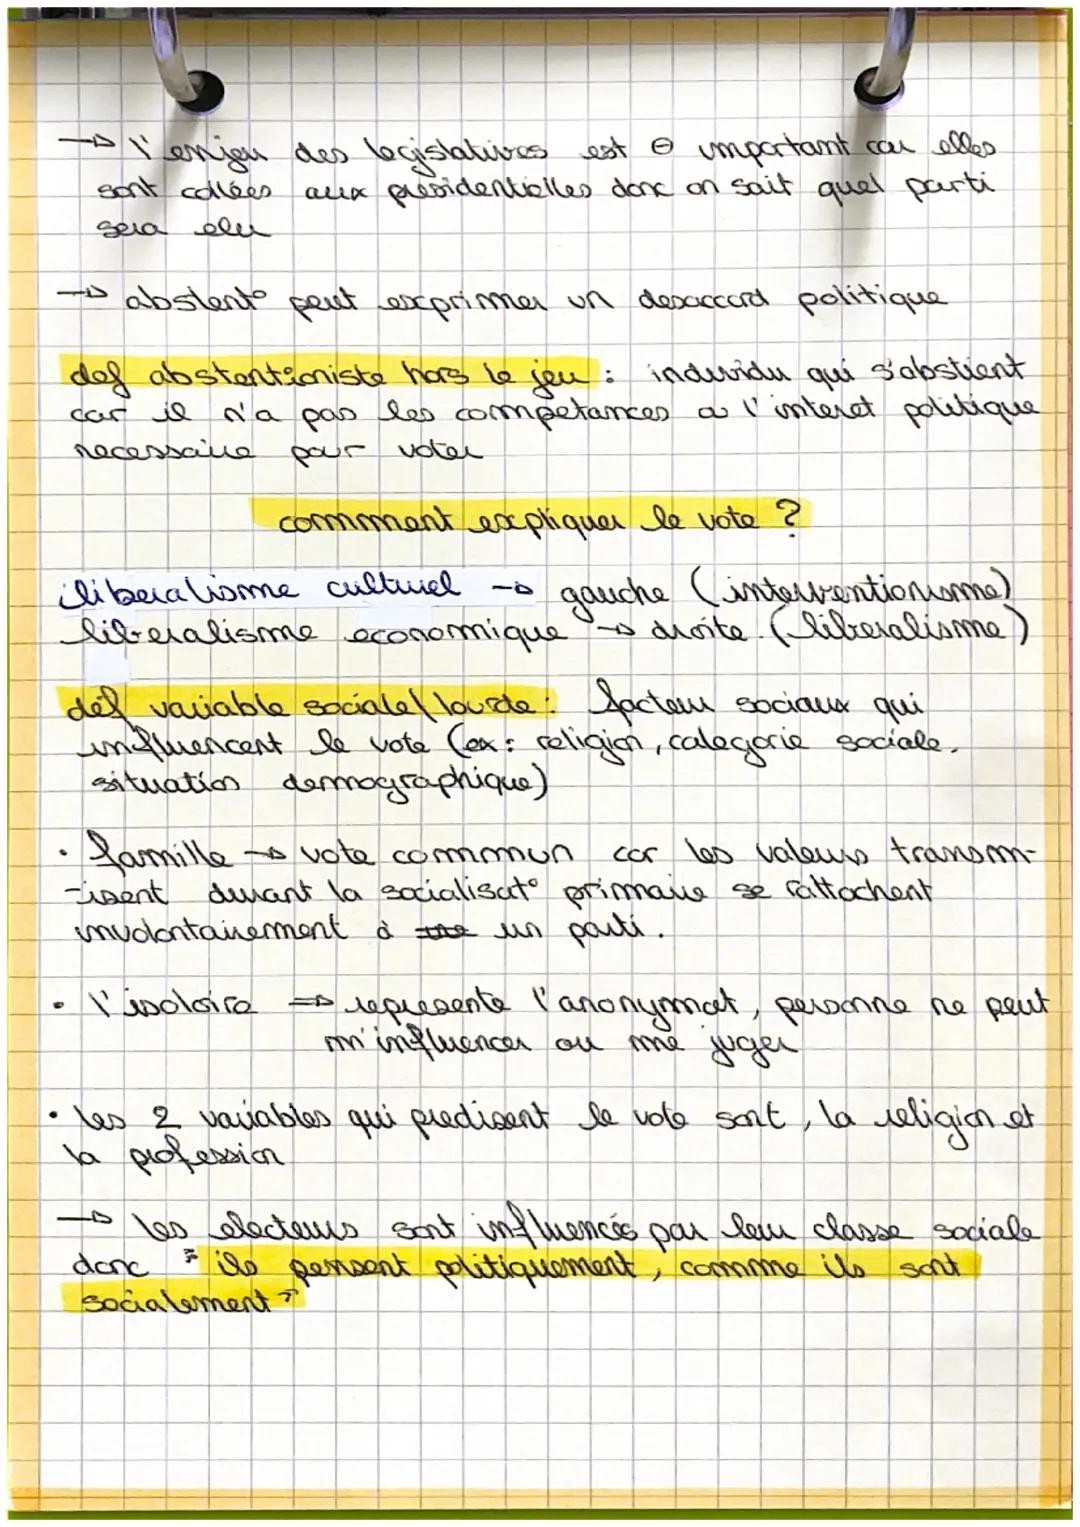 → l'enjeu des legislatives est ⊖ important car elles
sont collées aux présidentielles donc on sait quel parti
sera elu
→ abstent° peut exprimer un desaccord politique
def abstentioniste hors le jeu : individu qui s'abstient
car il n'a pas les competances a l'interet politique
necessaire pour voter
comment expliquer le vote ?
liberalisme culturel → gauche (interventionisme)
liberalisme economique → droite (liberalisme)
déf variable sociale/lourde : facteur sociaux qui
influencent le vote (ex: religion, categorie sociale,
situation demographique)
• famille → vote commun car les valeurs transm-
-isent durant la socialisat° primaire se rattachent
involontairement à un parti.
• l'isoloire ⇒ represente l'anonymat, personne ne peut
m'influencer ou me juger
• les 2 variables qui predisent le vote sont, la religion et
la profession
→ les electeurs sont influencés par leur classe sociale
donc " ils pensent politiquement, comme ils sont
socialement "